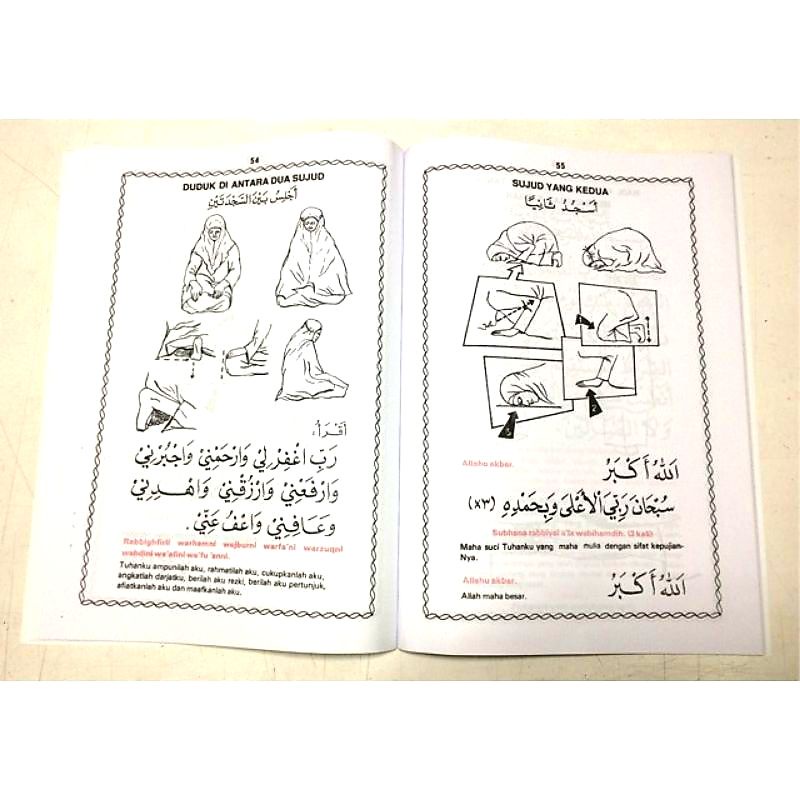 54
DUDUK DI ANTARA DUA SUJUD
اَجْلِسُ بَيْنَ السَّجْدَتَيْنِ
اَقْرَأُ:
رَبِّ اغْفِرْلِيْ وَارْحَمْنِيْ وَاجْبُرْنِيْ
وَارْفَعْنِيْ وَارْزُقْنِيْ وَاهْدِنِيْ
وَعَافِنِيْ وَاعْفُ عَنِّيْ.
Rabbighfirli warhamni wajburni warfa'ni warzuqni
wahdini wa'afini wa'fu 'anni.
Tuhanku ampunilah aku, rahmatilah aku, cukupkanlah aku,
angkatlah darjatku, berilah aku rezki, berilah aku pertunjuk,
afiatkanlah aku dan maafkanlah aku.
55
SUJUD YANG KEDUA
اَسْجُدُ ثَانِيًا
1
2
3
Allahu akbar.
اَللهُ اَكْبَرُ
سُبْحَانَ رَبِّيَ اْلأَعْلَى وَبِحَمْدِهِ (٣×)
Subhana rabbiyal a'la wabihamdih. (3 kali)
Maha suci Tuhanku yang maha mulia dengan sifat kepujian-
Nya.
Allahu akbar.
اَللهُ اَكْبَرُ
Allah maha besar.